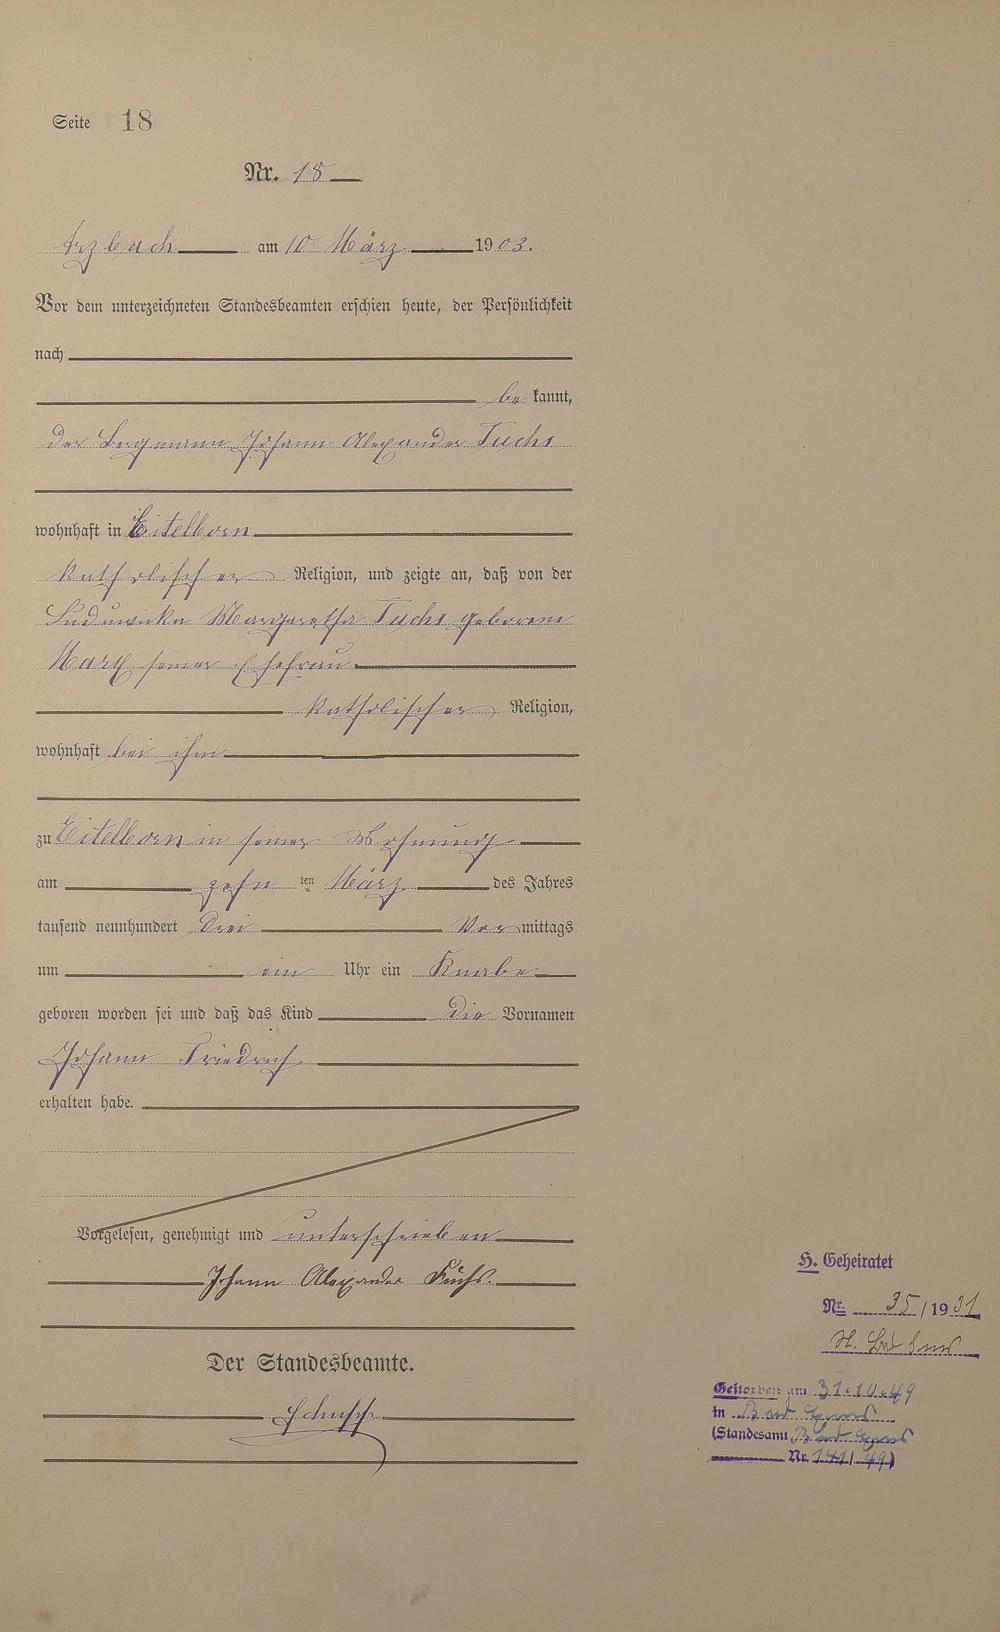 Seite 18
Nr. 18
Arzbach am 10 März 1903.
Vor dem unterzeichneten Standesbeamten erschien heute, der Persönlichkeit
nach
be kannt,
der Bergmann Johann Alexander Fuchs
wohnhaft in Eitelborn
katholischer Religion, und zeigte an, daß von der
Ludwika Margaretha Fuchs geborene
Marx seiner Ehefrau
katholischer Religion,
wohnhaft bei ihm
zu Eitelborn in seiner Wohnung
am zehn ten März des Jahres
tausend neunhundert drei Vor mittags
um ein Uhr ein Knabe
geboren worden sei und daß das Kind die Vornamen
Johann Friedrich
erhalten habe.
Vorgelesen, genehmigt und unterschrieben
Johann Alexander Fuchs.
Der Standesbeamte.
H. Geheiratet
Nr. 35/1931
St. Bad Ems
Gestorben am 31.10.49
in Bad Ems
(Standesamt Bad Ems
Nr. 141/49)